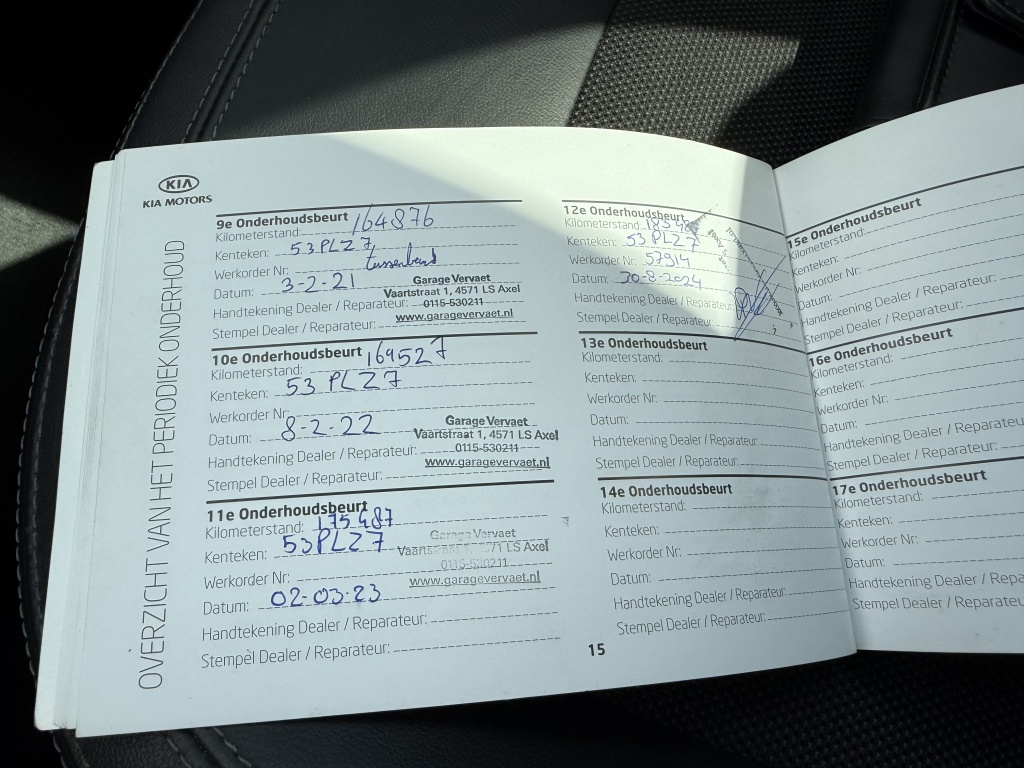 KIA
KIA MOTORS
OVERZICHT VAN HET PERIODIEK ONDERHOUD
9e Onderhoudsbeurt
Kilometerstand: 164876
Kenteken: 53PLZ7
Werkorder Nr:
Datum: 3-2-21
Garage Vervaet
Vaartstraat 1, 4571 LS Axel
0115-530211
www.garagevervaet.nl
Handtekening Dealer / Reparateur:
Stempel Dealer / Reparateur:
10e Onderhoudsbeurt
Kilometerstand: 169527
Kenteken: 53 PLZ7
Werkorder Nr:
Datum: 8-2-22
Garage Vervaet
Vaartstraat 1, 4571 LS Axel
0115-530211
www.garagevervaet.nl
Handtekening Dealer / Reparateur:
Stempel Dealer / Reparateur:
11e Onderhoudsbeurt
Kilometerstand: 175487
Kenteken: 53PLZ7
Werkorder Nr:
Datum: 02-03-23
Garage Vervaet
LS Axel
0115-530211
www.garagevervaet.nl
Handtekening Dealer / Reparateur:
Stempel Dealer / Reparateur:
12e Onderhoudsbeurt
Kilometerstand:
Kenteken: 53 PLZ7
Werkorder Nr: 57914
Datum: 30-8-2024
Handtekening Dealer / Reparateur:
Stempel Dealer / Reparateur:
13e Onderhoudsbeurt
Kilometerstand:
Kenteken:
Werkorder Nr:
Datum:
Handtekening Dealer / Reparateur:
Stempel Dealer / Reparateur:
14e Onderhoudsbeurt
Kilometerstand:
Kenteken:
Werkorder Nr:
Datum:
Handtekening Dealer / Reparateur:
Stempel Dealer / Reparateur:
15
15e Onderhoudsbeurt
Kilometerstand:
Kenteken:
Werkorder Nr:
Datum:
Handtekening Dealer / Reparateur:
Stempel Dealer / Reparateur:
16e Onderhoudsbeurt
Kilometerstand:
Kenteken:
Werkorder Nr:
Datum:
Handtekening Dealer / Reparateu
Stempel Dealer / Reparateur:
17e Onderhoudsbeurt
Kilometerstand:
Kenteken:
Werkorder Nr:
Datum:
Handtekening Dealer / Repa
Stempel Dealer / Reparateur